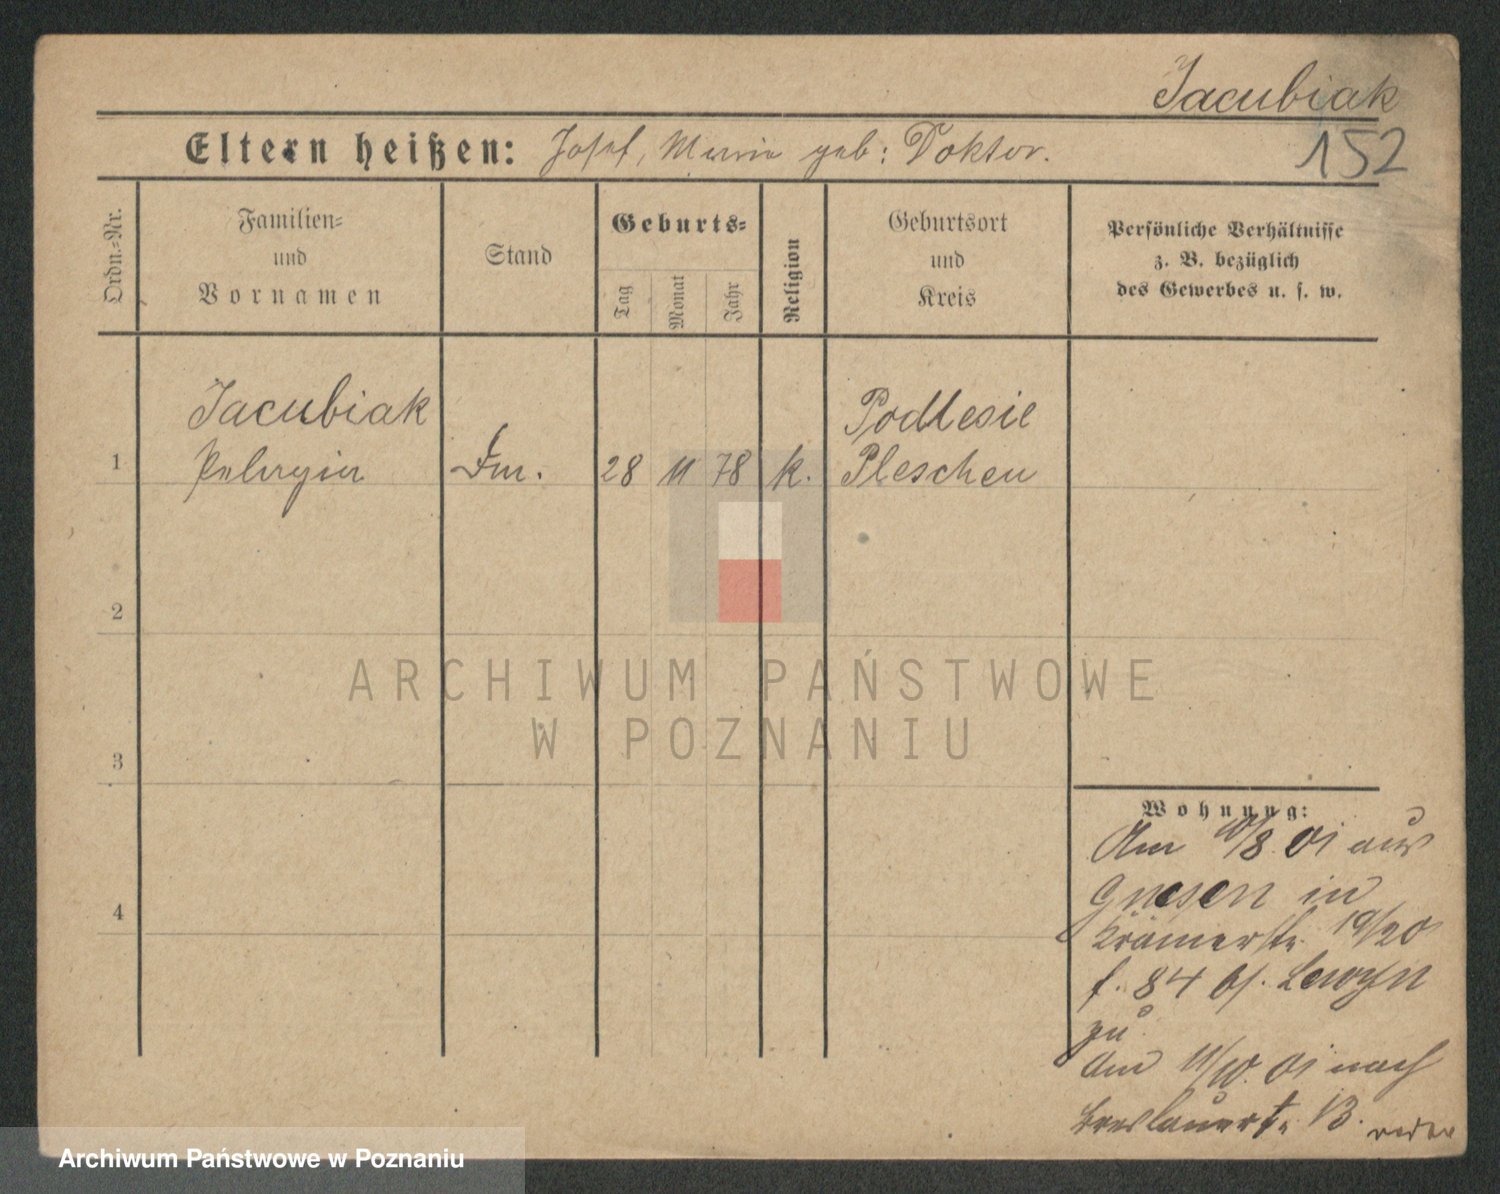 Jacubiak
152
Eltern heißen: Josef, Marie geb: Doktor.
Ordn.=Nr.
Familien=
und
Vornamen
Stand
Geburts=
Tag
Monat
Jahr
Religion
Geburtsort
und
Kreis
Persönliche Verhältnisse
z. B. bezüglich
des Gewerbes u. s. w.
Jacubiak Podlesie
1 Pelagia 28 11 78 k. Pleschen
2
ARCHIWUM PAŃSTWOWE
W POZNANIU
3
Wohnung:
Am 10/8 01 aus
4 Gnesen in
Krämerstr 19/20
f. 84 bf.
zu
Am 11/10. 01 nach
Breslauerstr. 13.
Archiwum Państwowe w Poznaniu